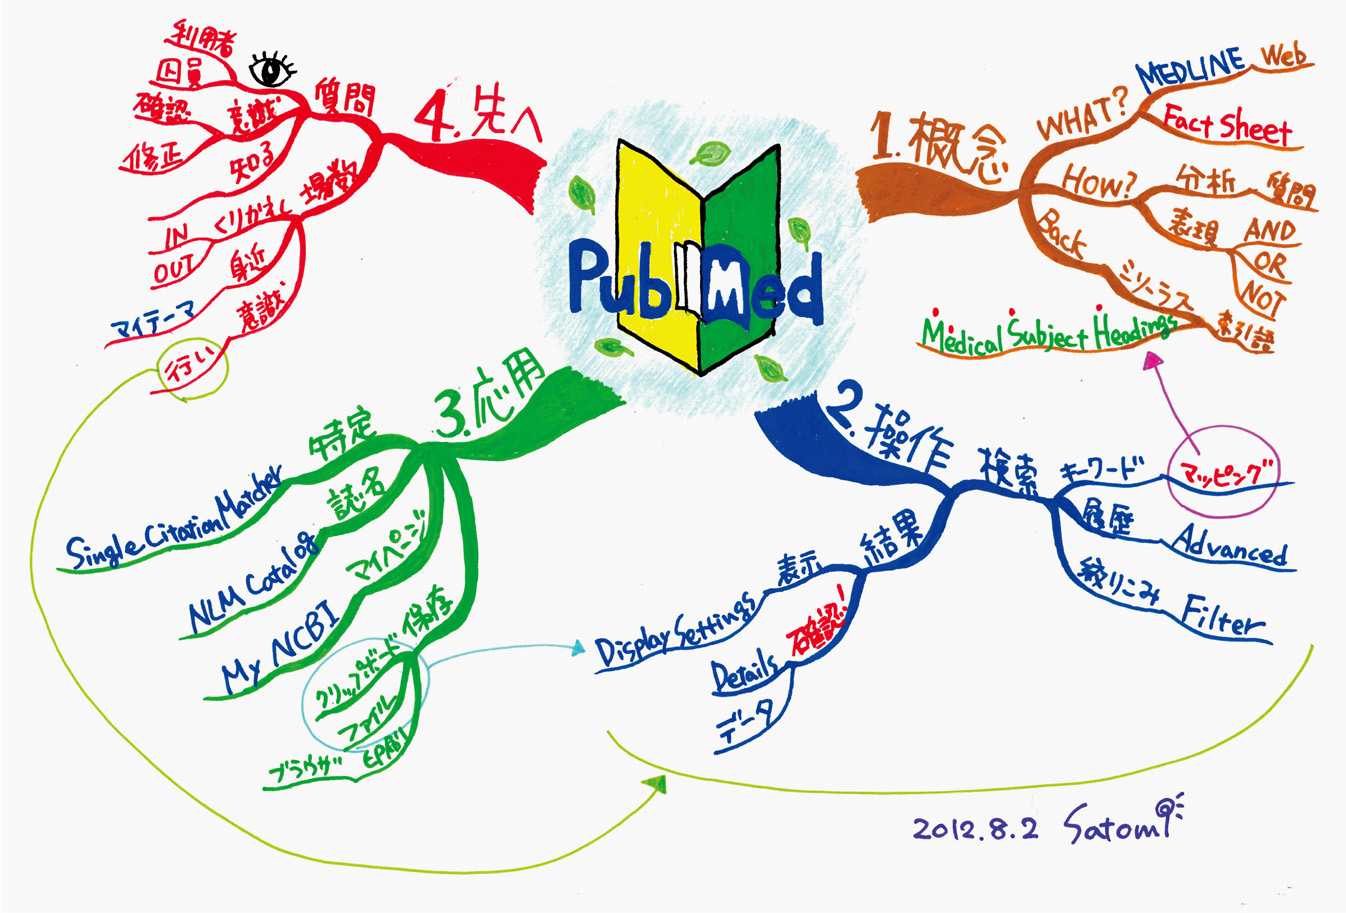 PubMed
1.概念
WHAT?
MEDLINE
Web
Fact Sheet
HOW?
分析
質問
表現
AND
OR
NOT
Back
シソーラス
索引語
Medical Subject Headings
2.操作
検索
キーワード
マッピング
履歴
Advanced
絞りこみ
Filter
結果
表示
Display Settings
確認!
Details
データ
3.応用
特定
Single Citation Matcher
誌名
NLM Catalog
マイページ
My NCBI
保存
クリップボード
ファイル
印刷
ブラウザ
4.先へ
質問
意識
利用者
図員
確認
修正
知る
場数
くりかえし
IN
OUT
身近
マイテーマ
意識
行い
2012.8.2 Satomi